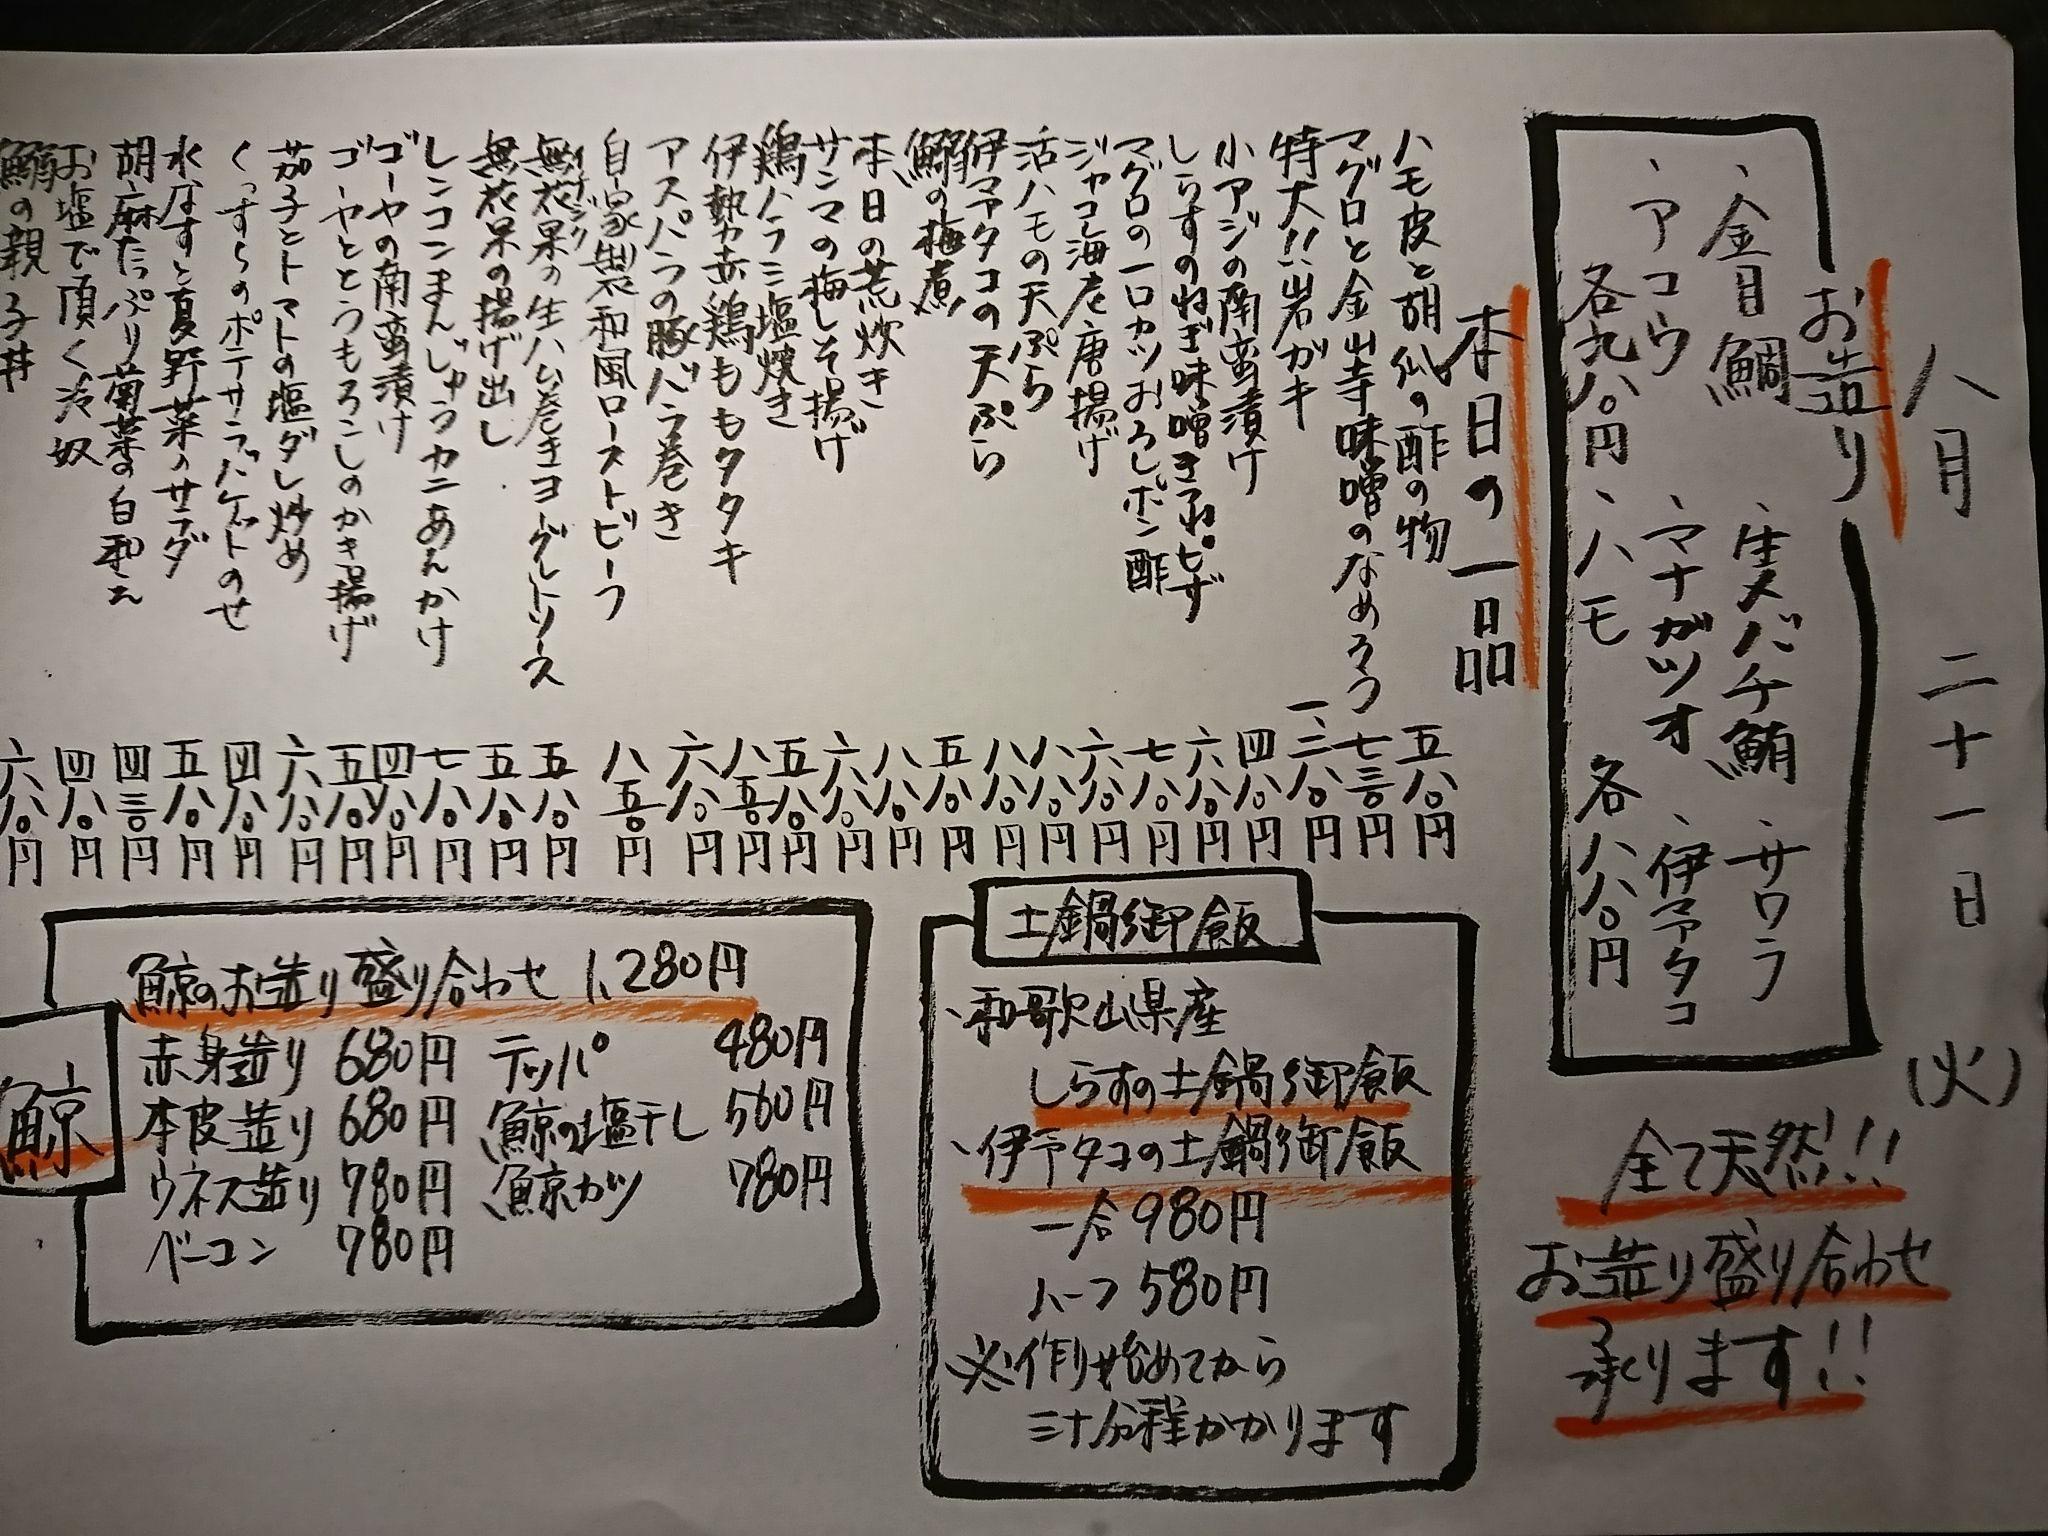 八月 二十一日 (火)
お造り
、金目鯛 、生メバチ鮪 、サワラ
、アコウ 、マナガツオ 、伊予タコ
各九八〇円 、ハモ 各八八〇円
全て天然!!
お造り盛り合わせ
承ります!!
本日の一品
ハモ皮と胡瓜の酢の物 五八〇円
マグロと金山寺味噌のなめろう 七三〇円
特大!!岩ガキ 一、二八〇円
小アジの南蛮漬け 四八〇円
しらすのねぎ味噌きつねピザ 六八〇円
マグロの一口カツおろしポン酢 七八〇円
ジャコ海老唐揚げ 六八〇円
活ハモの天ぷら 八八〇円
伊予タコの天ぷら 八八〇円
鰯の梅煮 五八〇円
本日の荒炊き 八八〇円
サンマの梅しそ揚げ 六八〇円
鶏ハラミ塩焼き 五八〇円
伊勢赤鶏ももタタキ 八五〇円
アスパラの豚バラ巻き 六八〇円
自家製和風ローストビーフ 八五〇円
無花果の生ハム巻きヨーグルトソース 五八〇円
イチジク
無花果の揚げ出し 五八〇円
レンコンまんじゅうカニあんかけ 七八〇円
ゴーヤの南蛮漬け 四八〇円
ゴーヤととうもろこしのかき揚げ 五八〇円
茄子とトマトの塩ダレ炒め 六八〇円
くつすらのポテサラバゲットのせ 四八〇円
水なすと夏野菜のサラダ 五八〇円
胡麻たっぷり菊菜の白和え 四三〇円
お塩で頂く冷奴 四八〇円
鰯の親子丼 六八〇円
土鍋御飯
、和歌山県産
しらすの土鍋御飯
、伊予タコの土鍋御飯
一合 980円
ハーフ 580円
※作り始めてから
三十分程かかります
鯨
鯨のお造り盛り合わせ 1,280円
赤身造り 680円 テッパ 480円
本皮造り 680円 鯨の塩干し 560円
ウネス造り 780円 鯨カツ 780円
ベーコン 780円